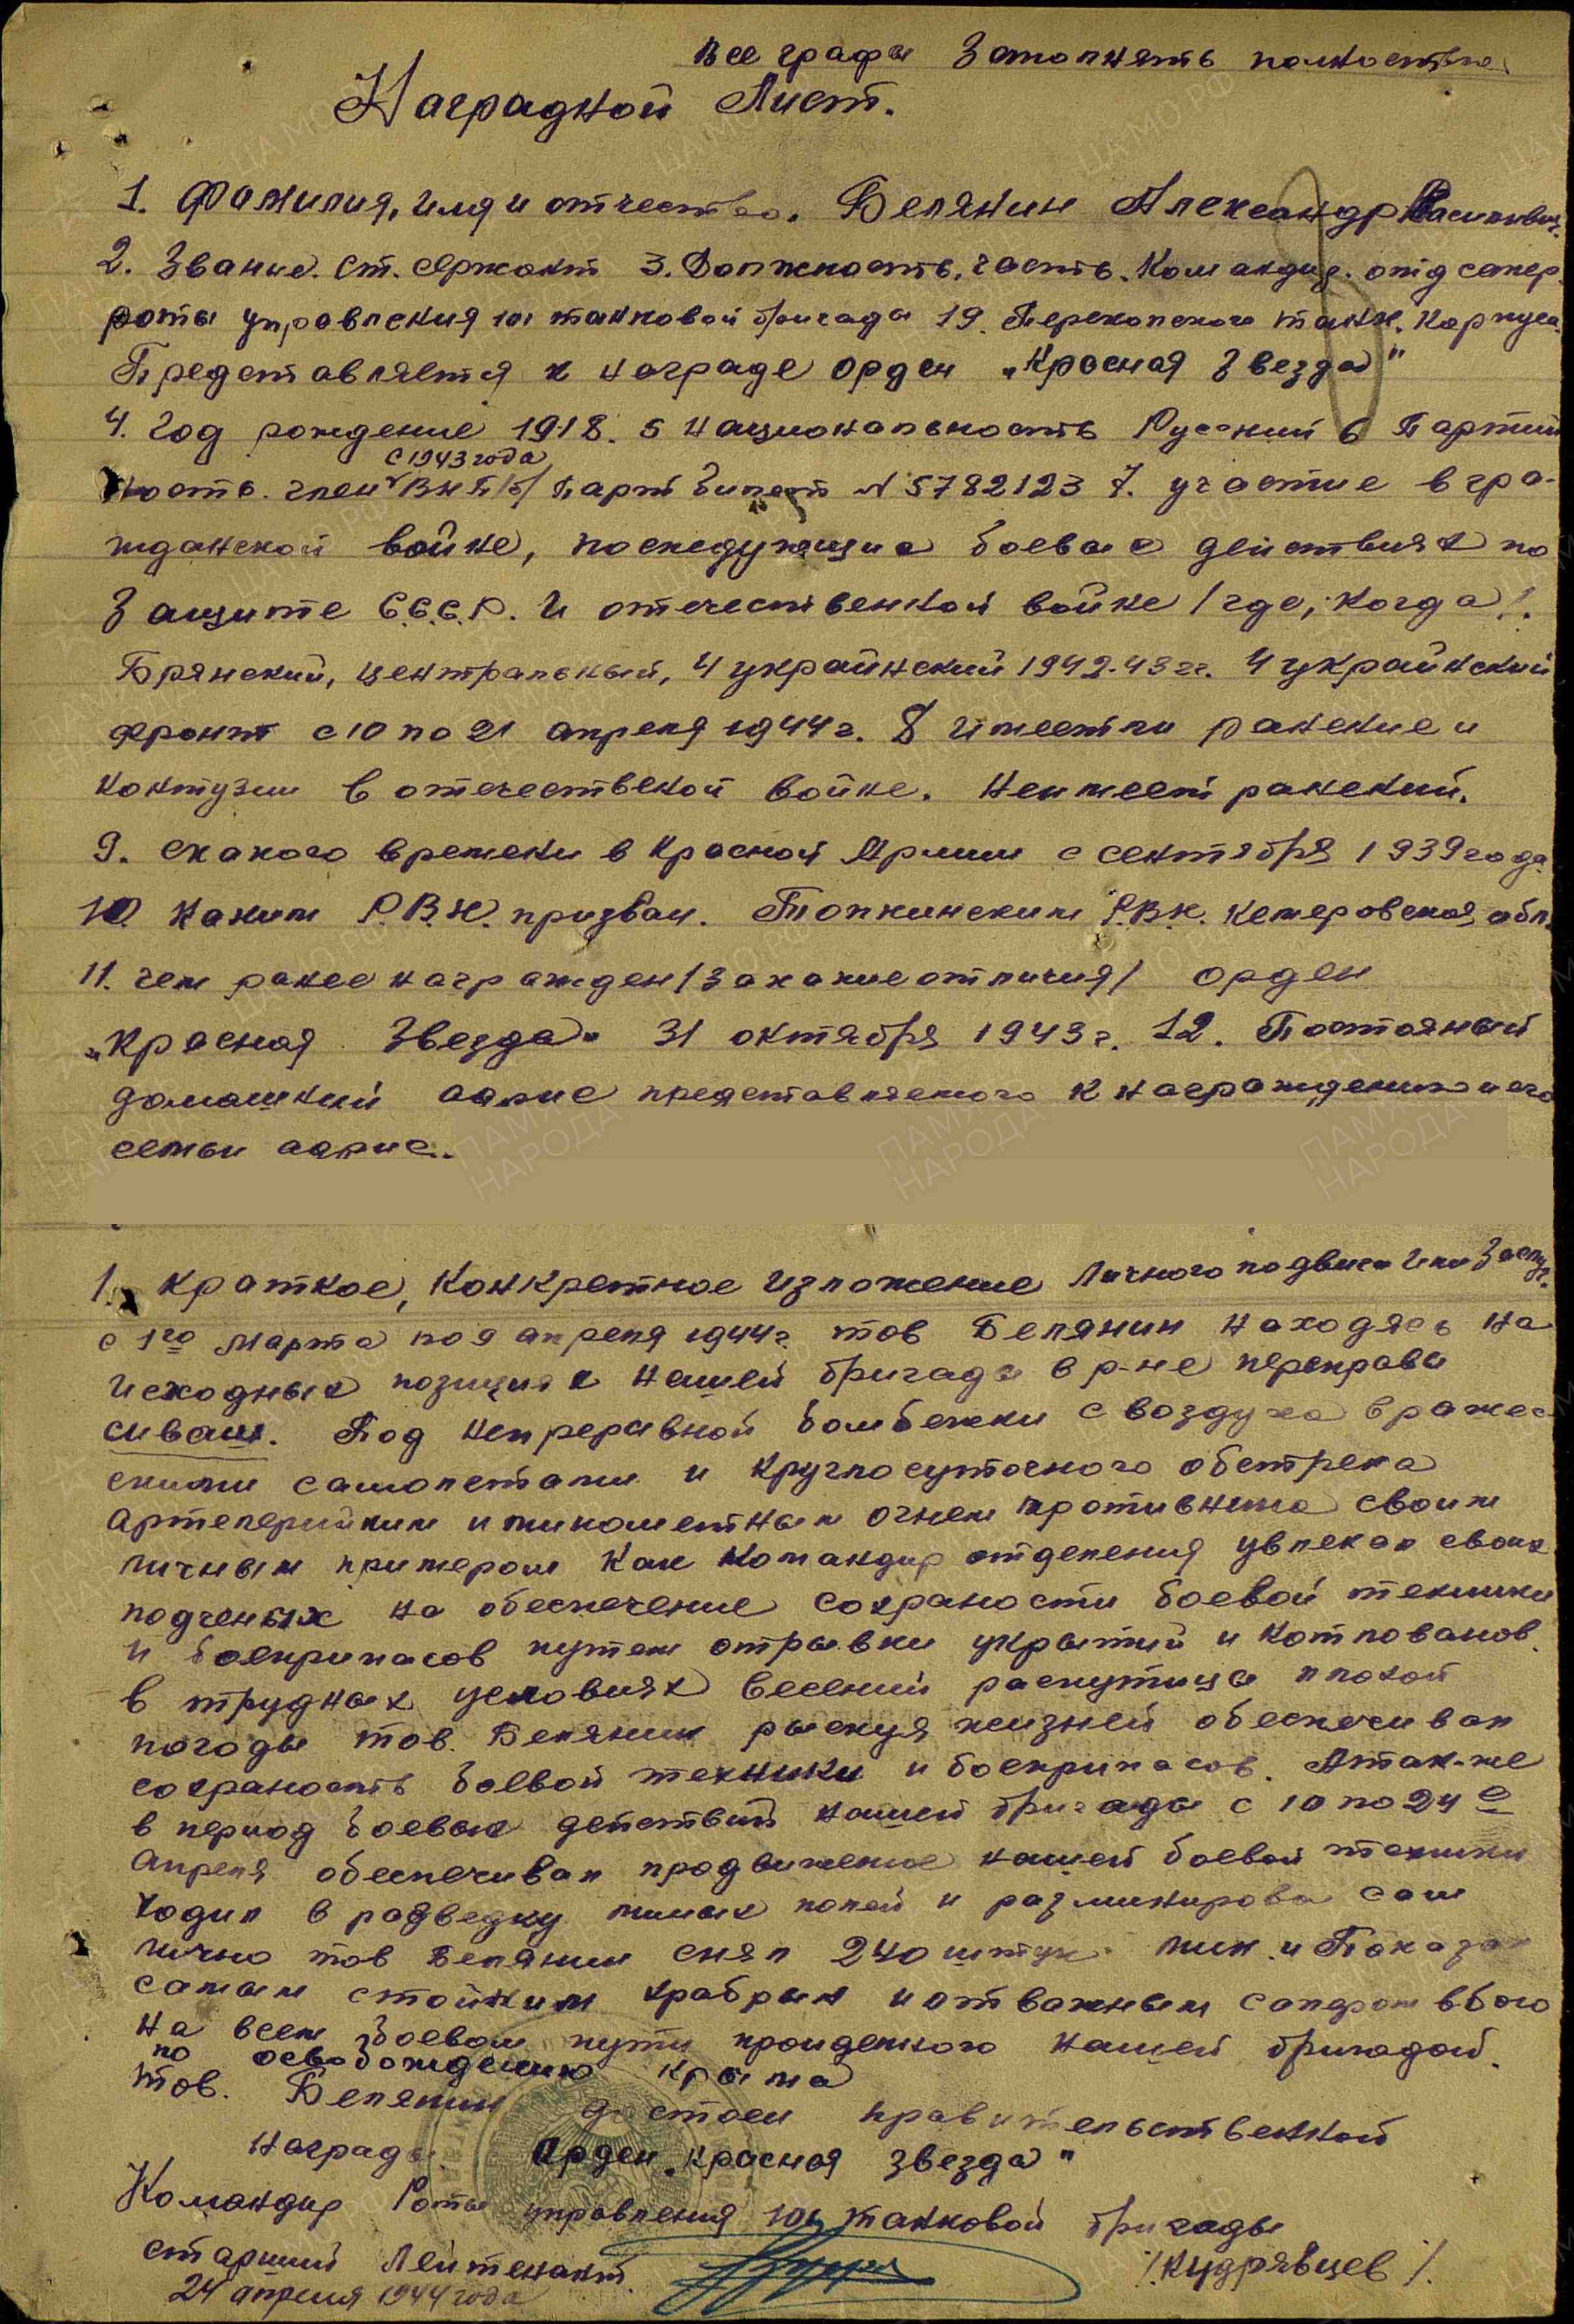 все графы Заполнять полностью
Наградной Лист.
1. Фамилия, имя и отчество. Белянин Александр Василивич.
2. Звание. Ст. сержант 3. Должность, часть. Командир. отд сапер.
роты управления 101 танковой бригады 19. Перекопского танк. Корпуса.
Представляется к награде орден „Красная Звезда"
4. Год рождение 1918. 5 Национальность Русский 6 Партий
с 1943 года
ность. член ВКП/б/ Парт билет N 5782123 7. участие в гра-
жданской войне, последующие боевые действиях по
Защите С.С.С.Р. и отечественной войне /где, когда/.
Брянский, центральный, 4 украинский 1942-43 гг. 4 украинский
фронт с 10 по 21 апреля 1944 г. 8 Имеет ли ранение и
контузии в отечественой войне. Неимеет ранений.
9. скакого времени в Красной Армии с сентября 1939 года
10. каким Р.В.К. призван. Топкинским Р.В.К. Кемеровская обл.
11. чем ранее награжден/за какие отличия/ орден
„Красная Звезда" 31 октября 1943 г. 12. Постояный
домашний адрис представляемого к награждению и его
семьи адрис..
1. Краткое, Конкретное изложение Личного подвига или Заслуг.
с 1го Марта по 9 апреля 1944 г. тов Белянин находясь на
исходных позициях нашей бригады в р-не переправы
сиваш. Под непреривной бомбежки с воздуха вражес-
скими самолетами и круглосуточного обстрела
артелерийким и миномётным огнем противника своим
личным примером Как Командир отделения увлекал своих
подченых на обеспечение сохраности боевой техники
и боеприпасов путем отрывки укрытий и котлованов.
в трудных условиях весений распутицы плохой
погоды тов. Белянин рискуя жизней обеспечивал
сохраность боевой техники и боеприпасов. Атак-же
в период боевых действий нашей бригады с 10 по 24е
Апреля обеспечивал продвижение нашей боевой техники
ходил в разведку миных полей и размикирова сам
лично тов Белянин снял 240 штук мин. и Показал
самым стойким храбрым и отважным сапером в бою
на всем боевом пути пройденого нашей бригадой.
по освобождению Крыма
тов. Белянин достоен правительственной
награды. Орден „Красная Звезда"
Командир Роты управления 101 танковой бригады
старший Лейтенант. /Кудрявцев/.
24 апреля 1944 года